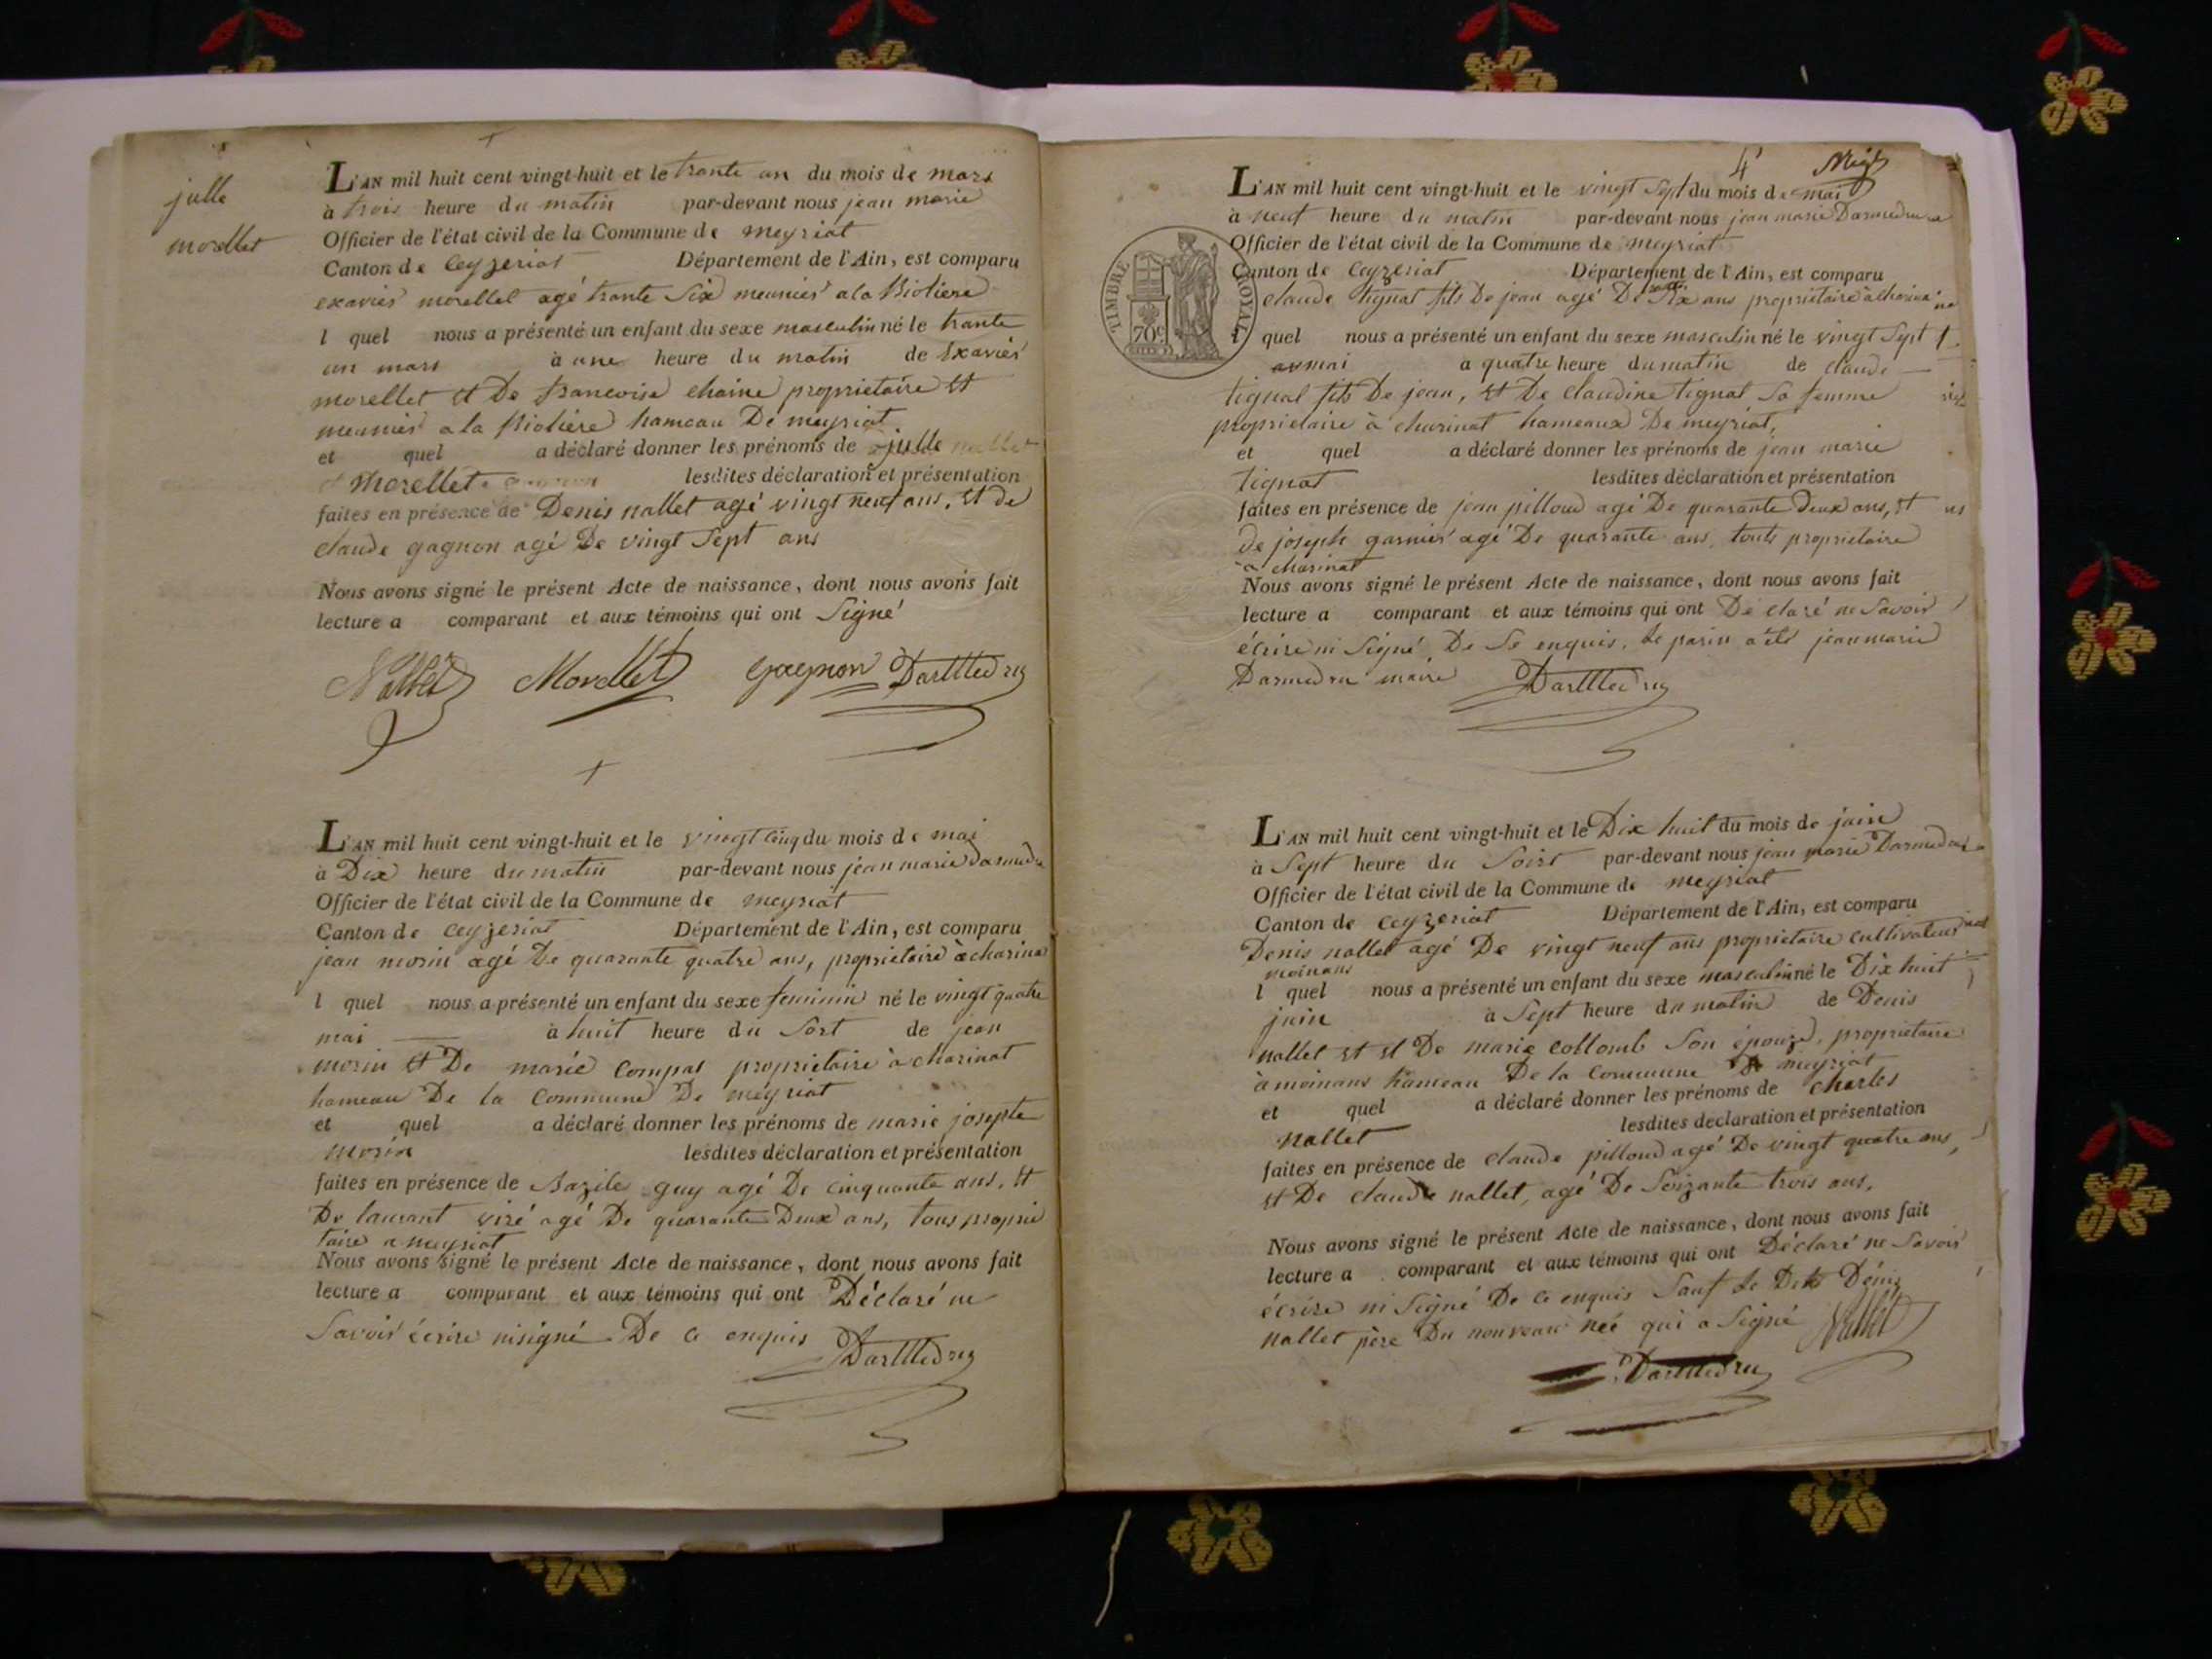 julle
morellet
L'AN mil huit cent vingt-huit et le trante un du mois de mars
à trois heure du matin par-devant nous jean marie
Officier de l'état civil de la Commune de meyriat
Canton de Ceyzeriat Département de l'Ain, est comparu
exavier morellet agé trante Six meunier a la
l quel nous a présenté un enfant du sexe masculin né le trante
un mars à une heure du matin de Exavier
morellet et De francoise chaine proprietaire et
meunier a la hameau De meyriat
et quel a déclaré donner les prénoms de julle
Morellet lesdites déclaration et présentation
faites en présence de Denis nallet agé vingt neuf ans, et de
claude gagnon agé De vingt Sept ans
Nous avons signé le présent Acte de naissance, dont nous avons fait
lecture a comparant et aux témoins qui ont Signé
Nallet Morellet gagnon Darmedru
L'AN mil huit cent vingt-huit et le vingt cinq du mois de mai
à Dix heure du matin par-devant nous jean marie Darmedru
Officier de l'état civil de la Commune de meyriat
Canton de Ceyzeriat Département de l'Ain, est comparu
jean morin agé De quarante quatre ans, proprietaire à charina
l quel nous a présenté un enfant du sexe feminin né le vingt quatre
mai à huit heure du Sort de jean
morin et De marie Compas proprietaire à charinat
hameau De la Commune De meyriat
et quel a déclaré donner les prénoms de marie josepte
morin lesdites déclaration et présentation
faites en présence de Bazile guy agé De cinquante ans, et
De laurant viré agé De quarante Deux ans, tous proprie
taire a meyriat
Nous avons signé le présent Acte de naissance, dont nous avons fait
lecture a comparant et aux témoins qui ont Déclaré ne
Savoir écrire ni signé De ce enquis Darmedru
4
L'AN mil huit cent vingt-huit et le vingt Sept du mois de mai
à neuf heure du matin par-devant nous jean marie Darmedru
Officier de l'état civil de la Commune de meyriat
Canton de Ceyzeriat Département de l'Ain, est comparu
TIMBRE ROYAL
70c
claude tignat fils De jean agé De Six ans proprietaire à charina
l quel nous a présenté un enfant du sexe masculin né le vingt Sept
mai a quatre heure du matin de claude
tignat fils De jean, et De claudine tignat Sa femme
proprietaire à charinat hameaux De meyriat,
et quel a déclaré donner les prénoms de jean marie
tignat lesdites déclaration et présentation
faites en présence de jean pilloud agé De quarante Deux ans, et
de joseph garnier agé De quarante ans, touts proprietaire
a charinat
Nous avons signé le présent Acte de naissance, dont nous avons fait
lecture a comparant et aux témoins qui ont Déclaré ne Savoir
écrire ni Signé De Se enquis, le jean marie
Darmedru maire Darmedru
L'AN mil huit cent vingt-huit et le Dix huit du mois de juin
à Sept heure du Soirt par-devant nous jean marie Darmedru
Officier de l'état civil de la Commune de meyriat
Canton de Ceyzeriat Département de l'Ain, est comparu
Denis nallet agé De vingt neuf ans proprietaire cultivateur
moinans
l quel nous a présenté un enfant du sexe masculin né le Dix huit
juin à Sept heure du matin de Denis
nallet et et De marie collomb Son épouze, proprietaire
à moinans hameau De la Commune De meyriat
et quel a déclaré donner les prénoms de charles
nallet lesdites déclaration et présentation
faites en présence de claude pilloud agé De vingt quatre ans,
et De claude nallet, agé De Soizante trois ans,
Nous avons signé le présent Acte de naissance, dont nous avons fait
lecture a comparant et aux témoins qui ont Déclaré ne Savoir
écrire ni Signé De ce enquis Sauf le Dit Dénis
nallet père Du nouveau neé qui a Signé Nallet
Darmedru